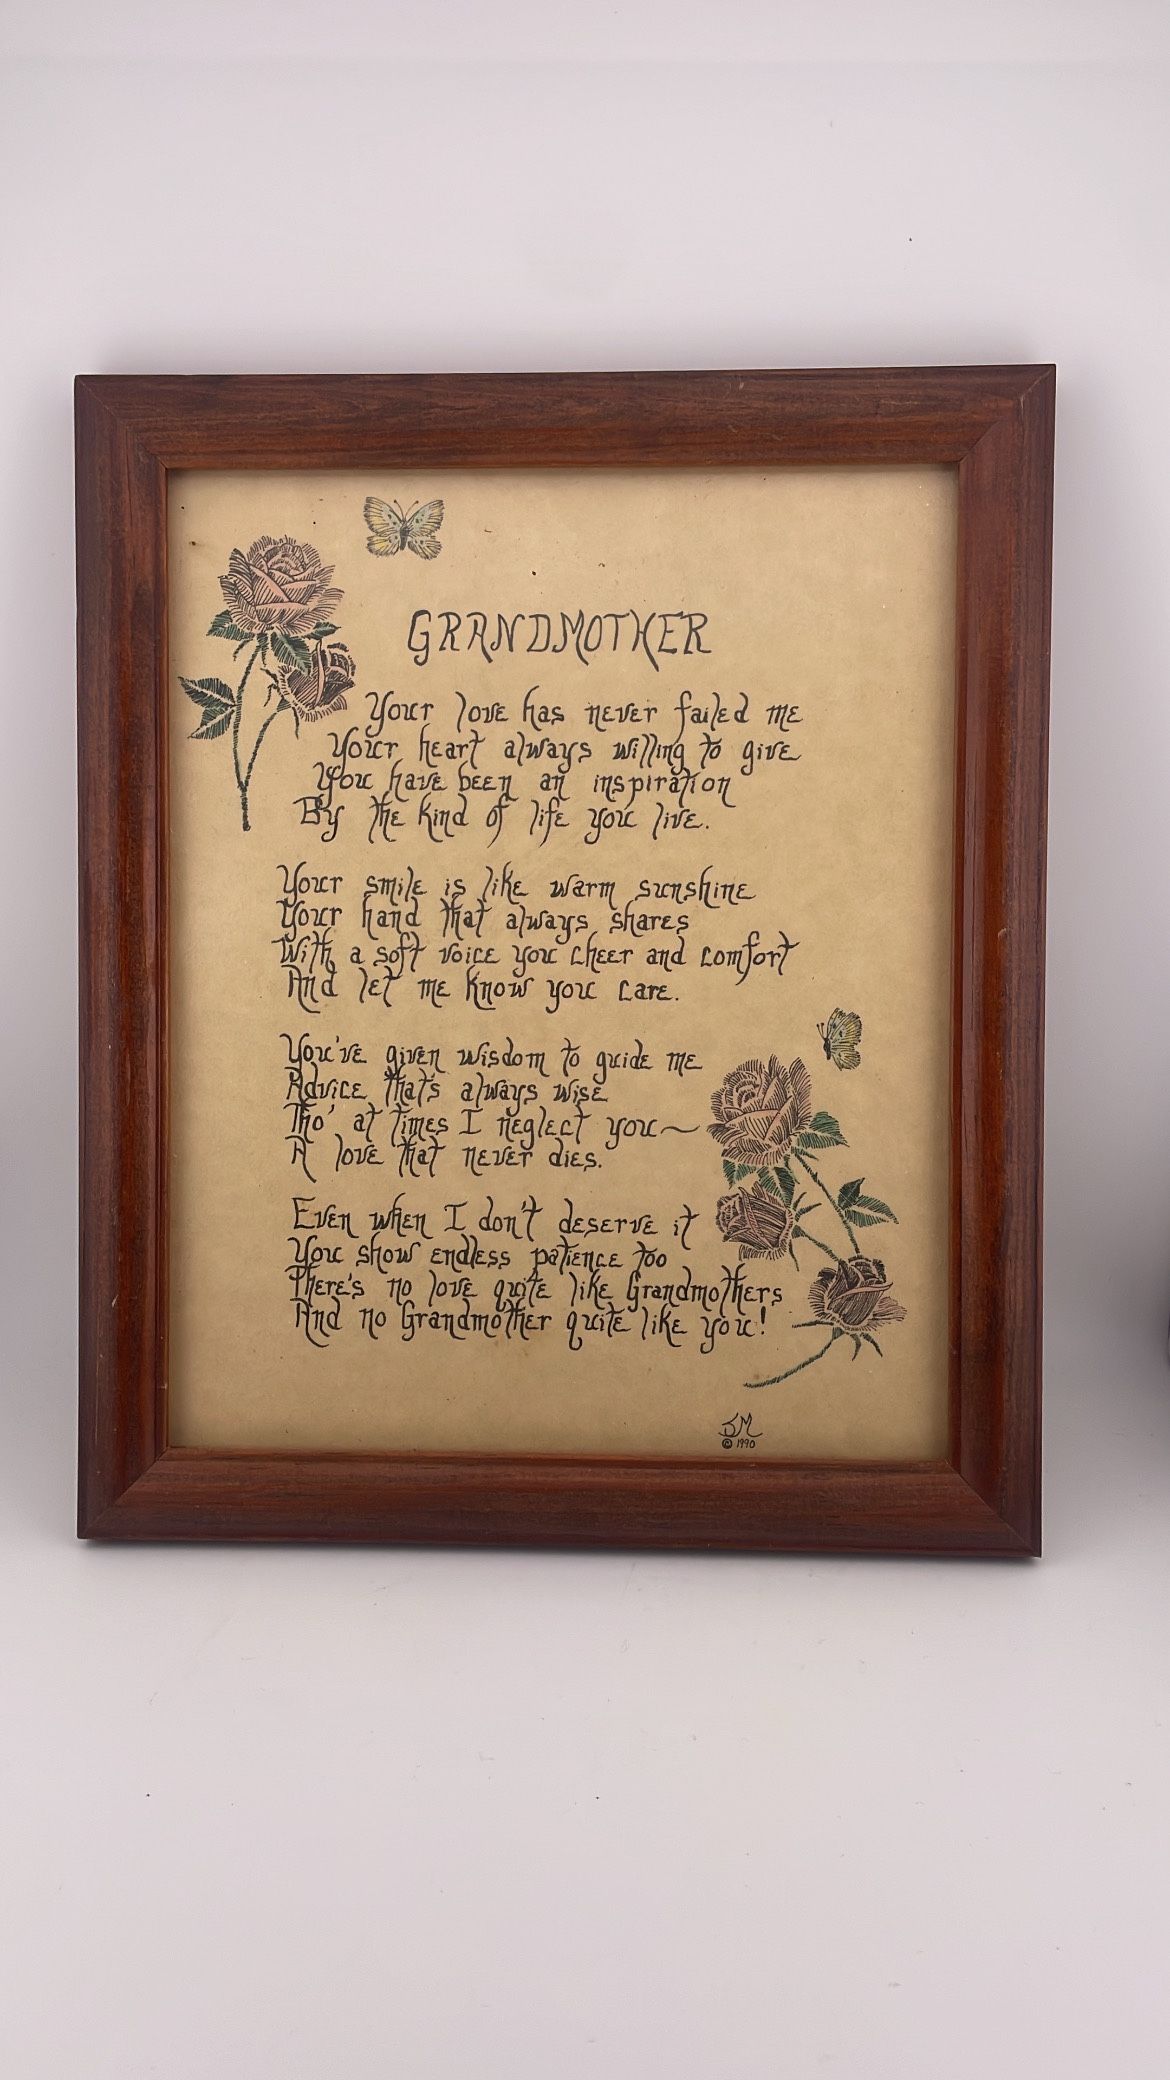 GRANDMOTHER
Your love has never failed me
Your heart always willing to give
You have been an inspiration
By the kind of life you live.
Your smile is like warm sunshine
Your hand that always shares
With a soft voice you cheer and comfort
And let me know you care.
You've given wisdom to guide me
Advice that's always wise
Tho' at times I neglect you~
A love that never dies.
Even when I don't deserve it
You show endless patience too
There's no love quite like Grandmothers
And no Grandmother quite like you!
© 1990